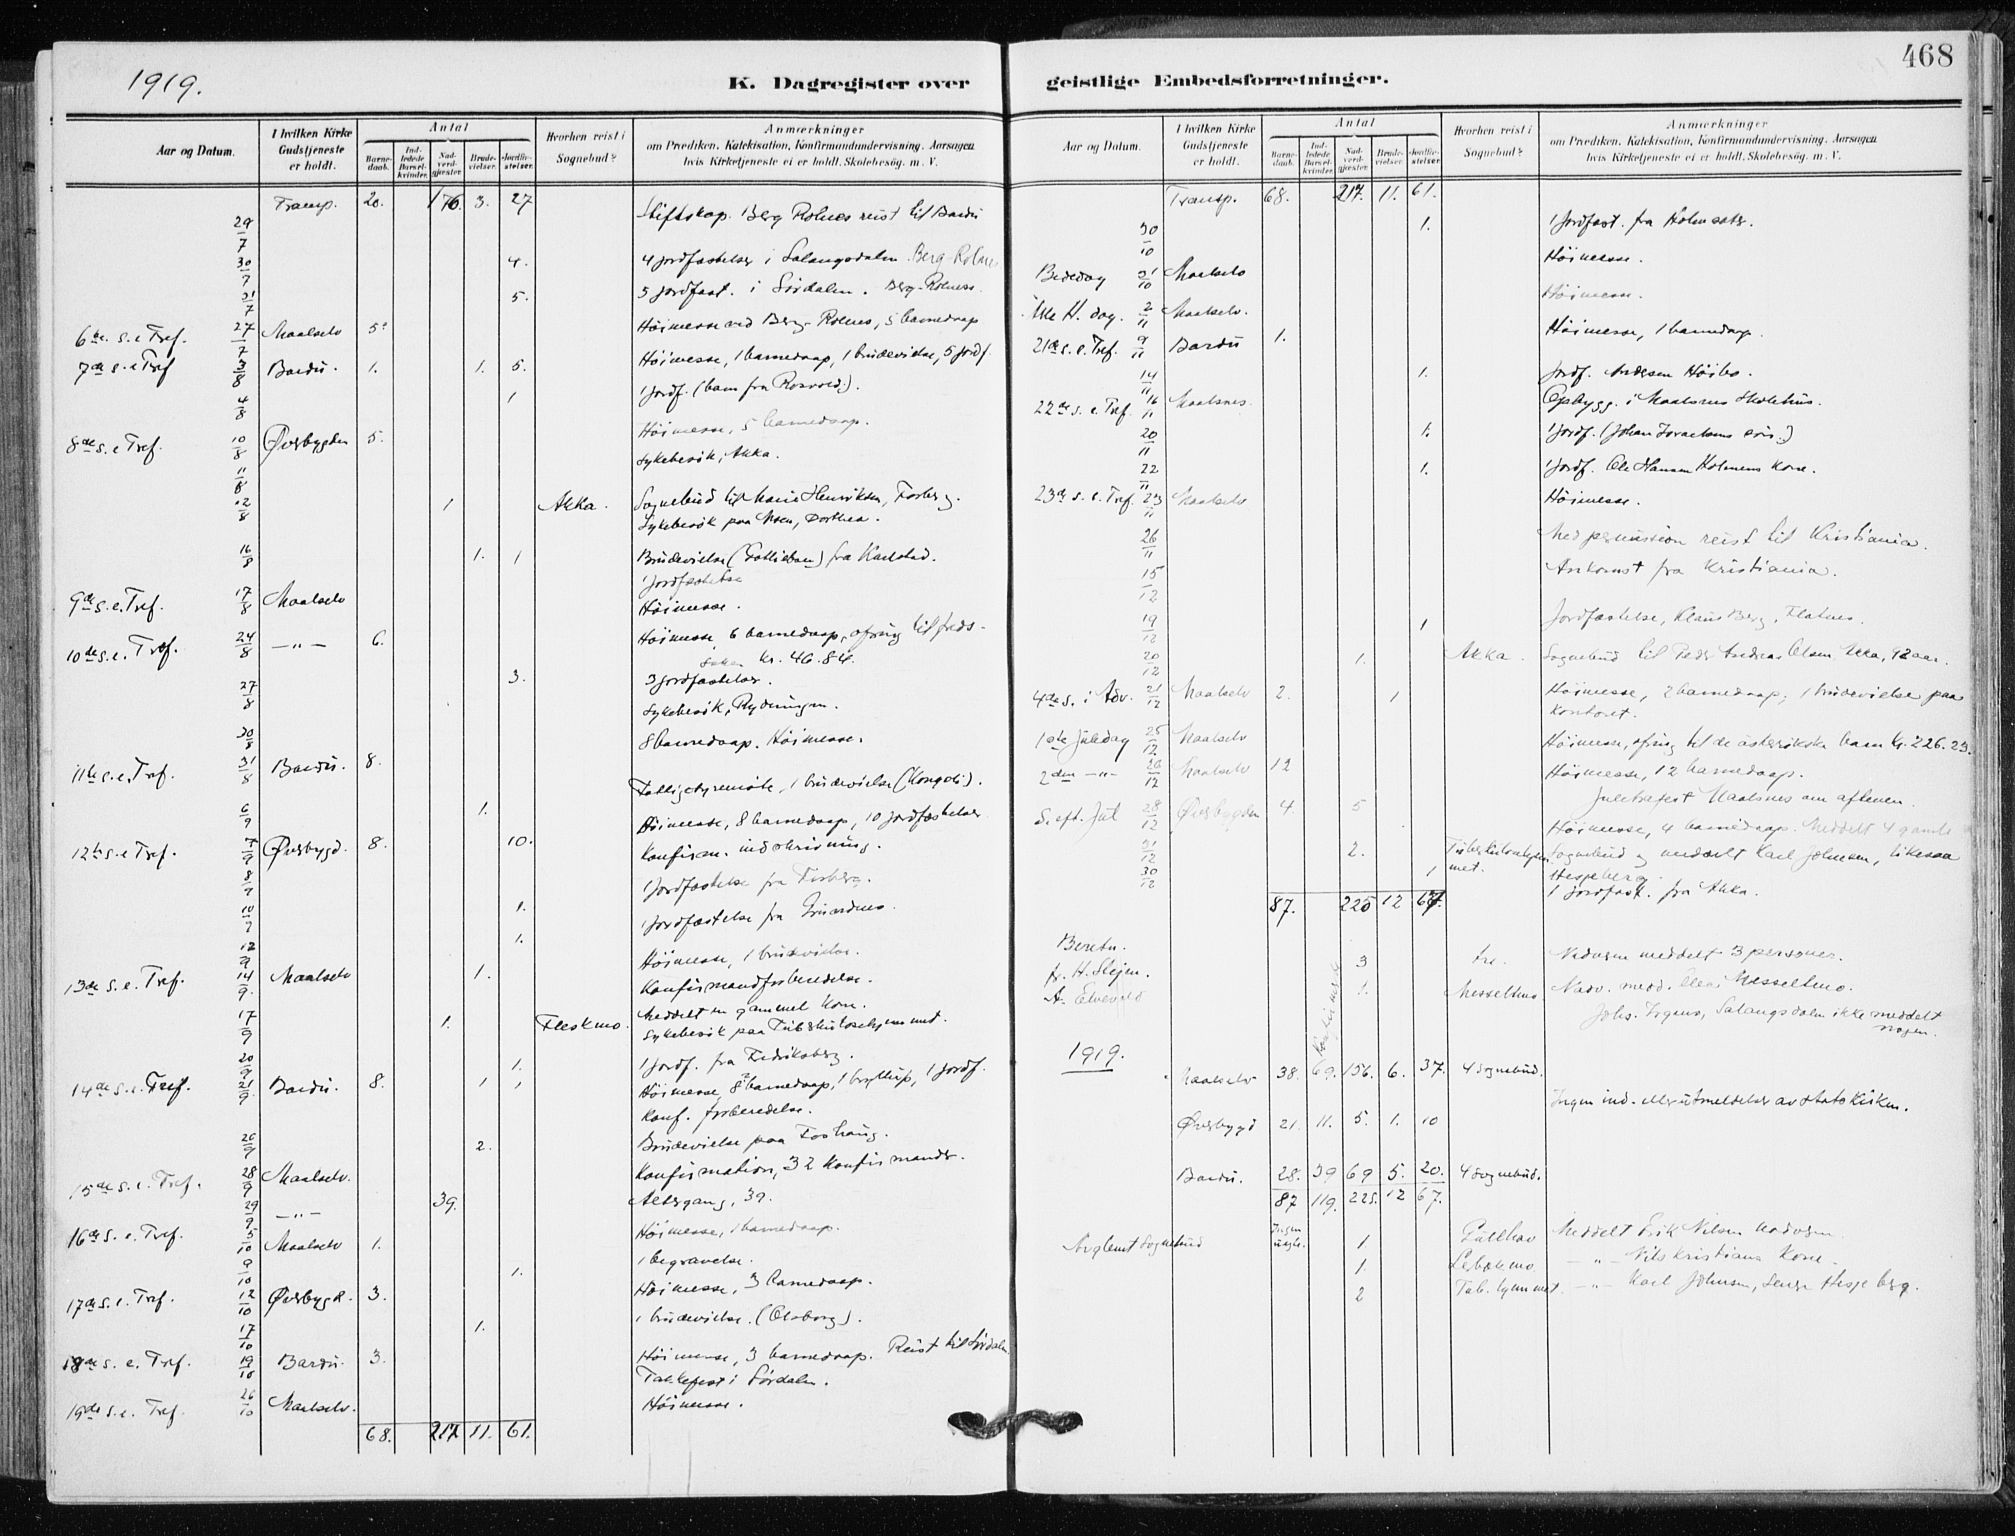 468
1919.
K. Dagregister over geistlige Embedsforretninger.
Aar og Datum.
I hvilken Kirke Gudstjeneste er holdt.
Antal
Barnedaab.
Indledede Barselkvinder.
Nadverdgjæster.
Brudevielser.
Jordfæstelser.
Hvorhen reist i Sognebud?
Anmærkninger
om Prædiken, Katekisation, Konfirmandundervisning. Aarsagen
hvis Kirketjeneste ei er holdt. Skolebesøg. m. V.
Transp. 20. 176. 3. 27
29/7 Stiftskap. Berg Rolnes reist til Bardu
30/7 4. 4 jordfæstelser i Salangsdalen Berg-Rolnes
31/7 5. 5 jordfæst. i Sördalen. Berg-Rolnes.
6te s. e Tref. 27/7 Maalselv 5 Höimesse ved Berg-Rolnes, 5 barnedaap
7de s. e Tref 3/8 Bardu. 1. 1. 5. Höimesse, 1 barnedaap, 1 brudevielse, 5 jordf.
4/8 1 1 jordf. (barn fra Rosvold.)
8de s. e Tref. 10/8 Øverbygden 5. Höimesse, 5 barnedaap.
11/8 Sykebesök, Akka.
12/8 1 Akka. Sognebud til Marie Henriksen, Fosberg.
Sykebesök paa Moen, Dorthea.
16/8 1. 1 Brudevielse (Gottliebsen) fra Karlstad.
1 jordfæstelse
9de s. e. Tref. 17/8 Maalselv Höimesse.
10de s. e. Tref. 24/8 —"— 6. Höimesse 6 barnedaap, ofring til freds-
saken kr. 46.84.
27/8 3. 3 jordfæstelser.
30/8 Sykebesök, Rydningen.
11te s. e. Tref. 31/8 Bardu. 8. 8 barnedaap. Höimesse.
6/9 1. Fattigstyremöte, 1 brudevielse (Kongsli).
12te s. e Tref. 7/9 Øverbygd. 8. 10. Höimesse, 8 barnedaap, 10 jordfæstelser
8/9 Konfirm. indskrivning.
10/9 1. 1 jordfæstelse fra Fosberg.
12/9 1. 1 jordfæstelse fra Grundnes.
13de s. e. Tref. 14/9. Maalselv 1. Höimesse, 1 brudevielse.
Konfirmandforberedelse.
17/9 1. Fleskmo. Meddelt en gammel kone.
Sykebesök paa Tuberkulosehjemmet.
20/9 1. 1 jordf. fra Fredriksberg.
14de s. e. Tref. 21/9. Bardu. 8. 1 1 Höimesse, 8 barnedaap, 1 bryllup, 1 jordf.
Konf. forberedelse.
26/9 2. Brudevielse paa Foshaug.
15de s. e. Tref. 28/9 Maalselv. Konfirmation, 32 konfirmander.
29/9 —"— 39. Altergang, 39.
16de s. e. Tref. 5/10 Maalselv 1. Höimesse, 1 barnedaap.
9/10 1. 1 begravelse.
17de s. e. Tref. 12/10 Øverbygd. 3. Höimesse, 3 barnedaap.
17/10 1. 1 brudevielse. (Olsborg).
18de s. e. Tref. 19/10 Bardu. 3. Höimesse, 3 barnedaap. Reist til Sördalen
Takkefest i Sördalen.
19de s. e. Tref. 26/10 Maalselv. Höimesse.
68. 217 11. 61.
Aar og Datum.
I hvilken Kirke Gudstjeneste er holdt.
Antal
Barnedaab.
Indledede Barselkvinder.
Nadverdgjæster.
Brudevielser.
Jordfæstelser.
Hvorhen reist i Sognebud?
Anmærkninger
om Prædiken, Katekisation, Konfirmandundervisning. Aarsagen
hvis Kirketjeneste ei er holdt. Skolebesøg. m. V.
Transp. 68. 217. 11. 61.
30/10 1. 1 jordfæst. fra Holmsæter.
Bededag 31/10 Maalselv Höimesse.
Alle H. dag. 2/11 Maalselv. Höimesse.
21de s. e. Tref. 9/11 Bardu 1. Höimesse, 1 barnedaap.
14/11 1. Jordf. Andersen Höibo.
22de s. e. Tref. 16/11 Maalsnes. Opbygg. i Maalsnes skolehus.
20/11 1. 1 jordf. (Johan Israelsens sön.)
22/11 1. 1 jordf. Ole Hansen Holmens kone.
23de s. e. Tref. 23/11 Maalselv Höimesse.
26/11 Med permission reist til Kristiania.
15/12 Ankomst fra Kristiania.
19/12 1 Jordfæstelse, Klaus Berg, Flatnes.
20/12 1. Akka. Sognebud til Peder Andreas Olsen Akka, 92 aar.
4de s. i Adv. 21/12 Maalselv 2. 1 Höimesse, 2 barnedaap, 1 brudevielse paa
kontoret.
1ste Juledag 25/12 Maalselv Höimesse, ofring til de österrikske barn kr. 226.23.
2den —"— 26/12 Maalselv 12 Höimesse, 12 barnedaap.
Juletræfest Maalsnes om aftenen.
S. eft. Jul 28/12 Øverbygden 4. 5 Höimesse, 4 barnedaap. Meddelt 4 gamle
31/12 2. Tuberkulosehjemmet. Sognebud og meddelt Karl Johnsen, likesaa
Hespeberg.
30/12 1 1 jordfæst. fra Akka.
87. 225 12 67.
Beretn.
fr. H. Slejm. 3 Nadveren meddelt 3 personer.
A. Elvevold 1. Messeltmo Nadv. medd. Messeltmo.
Johs. Irgens, Salangsdalen ikke meddelt
nogen.
1919.
Maalselv 38. 69. 156. 6. 37. 4 sognebud.
Ingen ind- eller utmeldelser av statskirken.
Øverbygd 21. 11. 5. 1. 10
Bardu. 28. 39 69 5. 20. 4 sognebud.
87 119. 225. 12 67.
Avglemt sognebud 1 Gullhav Meddelt Erik Nilsen nadveren.
1. —"— Nils Kristians kone.
2 Tub. hjemmet. —"— Karl Johnsen,